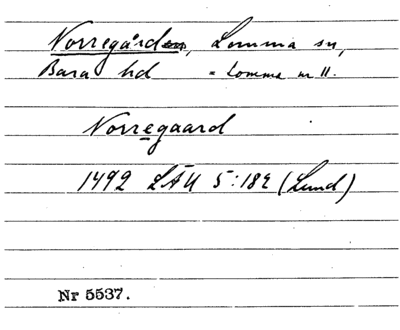 Norregård, Lomma sn,
Bara hd = Lomma nr 11.
Norregaard
1492 LÄU 5:182 (Lund)
Nr 5537.